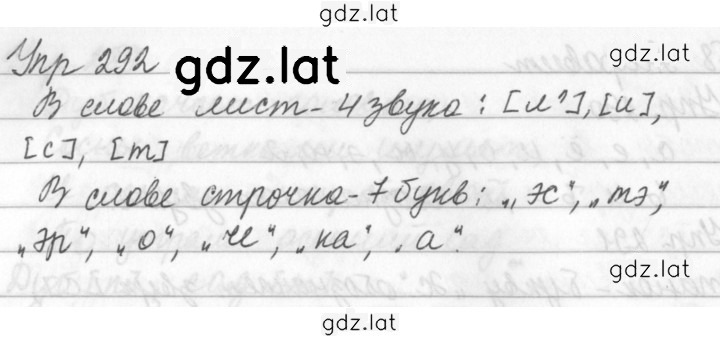 gdz.lat
Упр 292 gdz.lat
В слове лист - 4 звука: [л'], [и],
[с], [т]
В слове строчка - 7 букв: „эс“, „тэ“,
„эр“, „о“, „че“, „ка“, „а“.
gdz.lat
gdz.lat